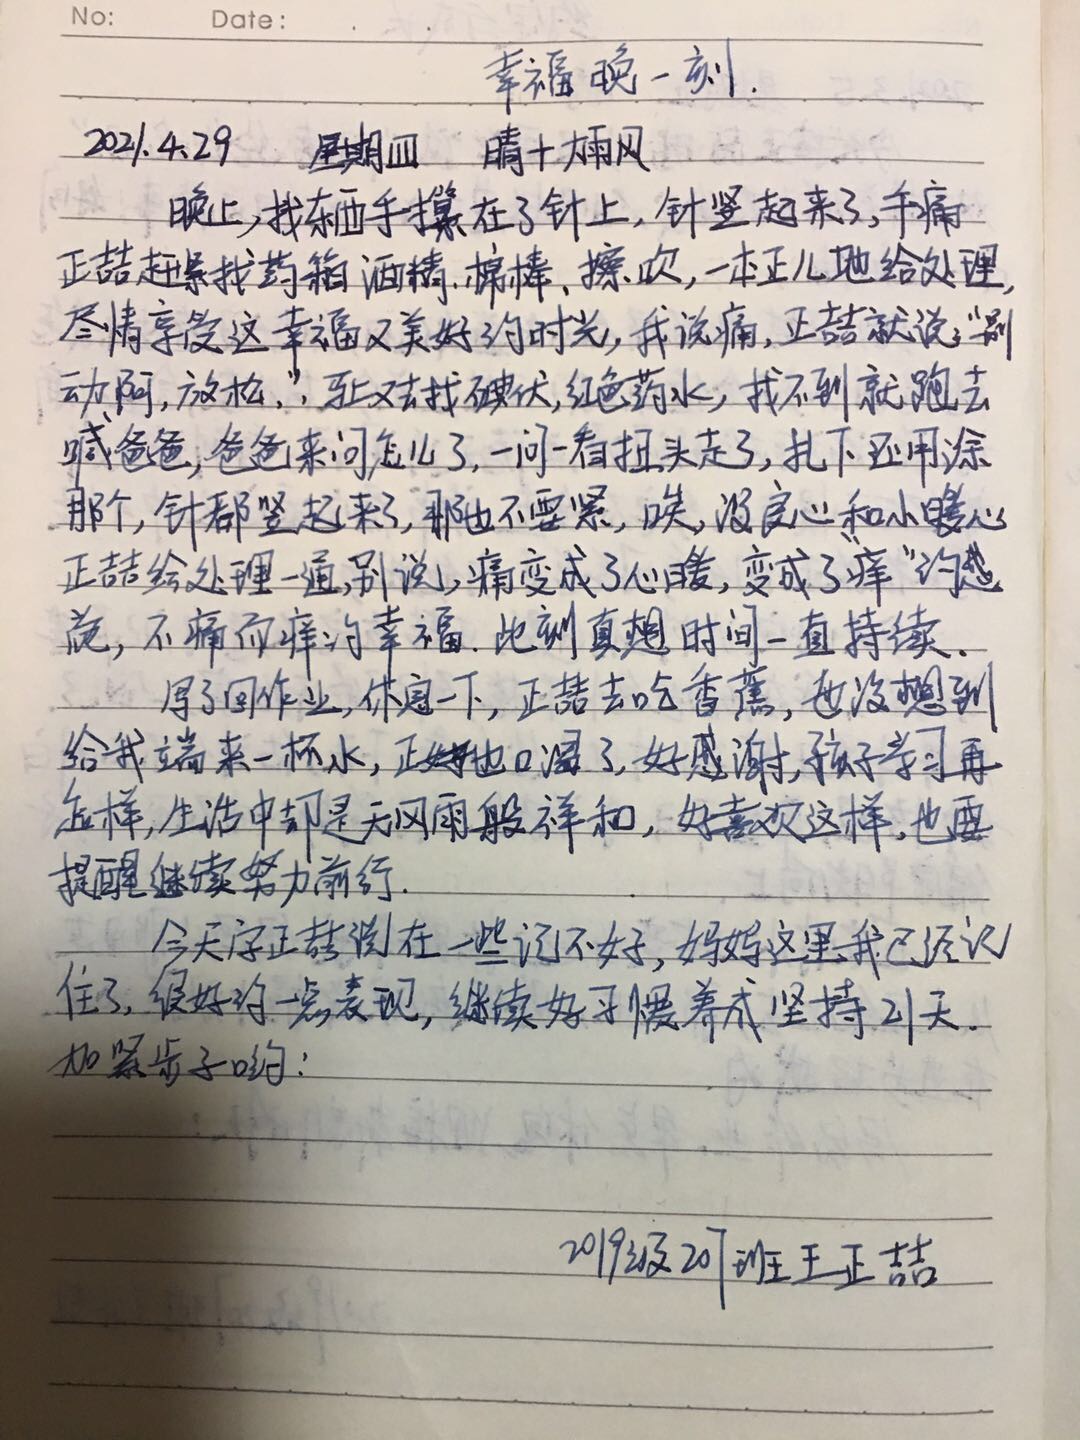 No: Date: . .
幸福晚一刻.
2021.4.29 星期四 晴+大雨风
晚上,找东西手摸在了针上,针竖起来了,手痛
正喆赶紧找药箱酒精.棉棒、擦吹,一本正儿地给处理,
尽情享受这幸福又美好的时光,我说痛,正喆就说:“别
动阿,放松,”,马上又去找碘伏,红色药水,找不到就跑去
喊爸爸,爸爸来问怎儿了,一问一看扭头走了,扎下还用涂
那个,针都竖起来了,那也不要紧,唉,没良心和小暖心
正喆给处理一通,别说,痛变成了心暖,变成了“痒”的感
觉,不痛而痒的幸福.此刻真想时间一直持续.
写了回作业,休息一下,正喆去吃香蕉,也没想到
给我端来一杯水,正好也口渴了,好感谢,孩子学习再
怎样,生活中却是无风雨般祥和,好喜欢这样,也要
提醒继续努力前行.
今天字正喆说在一些记不好,妈妈这里我已经记
住了,很好的一总表现,继续好习惯养成坚持21天.
加紧步子哟:
2019级207班王正喆